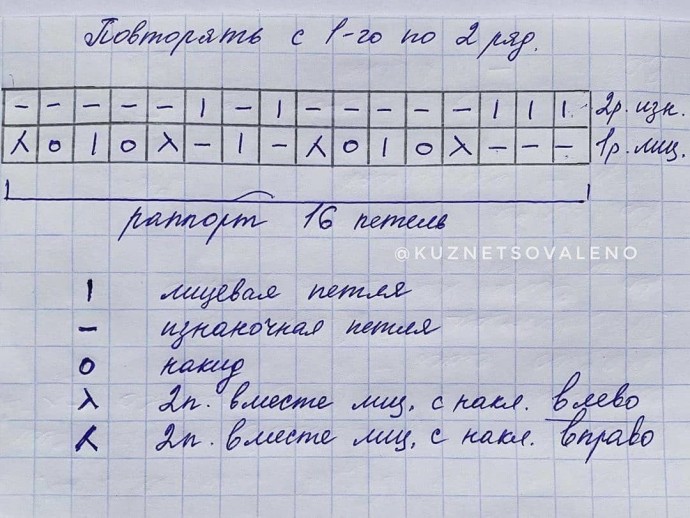 Повторять с 1-го по 2 ряд.
– – – – – | – | – – – – – | | | 2р. изн.
⅄ о | о λ – | – ⅄ о | о λ – – – 1р. лиц.
раппорт 16 петель
@KUZNETSOVALENO
| лицевая петля
– изнаночная петля
о накид
λ 2п. вместе лиц. с накл. влево
⅄ 2п. вместе лиц. с накл. вправо